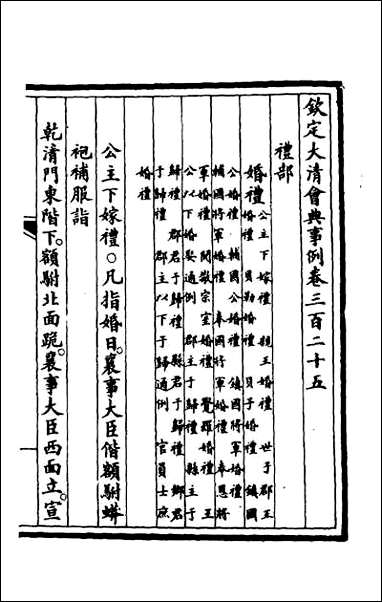 欽定大清會典事例卷三百二十五
禮部
婚禮 公主下嫁禮 親王婚禮 世子郡王
貝勒婚禮 貝子婚禮 鎮國
公婚禮 輔國公婚禮 鎮國將軍婚禮
輔國將軍婚禮 奉國將軍婚禮 奉恩將
軍婚禮 閒散宗室婚禮 覺羅婚禮 王
公以下婚娶通例 郡主于歸禮 縣主于
歸禮 郡君于歸禮 縣君于歸禮 鄉君
于歸禮 郡主以下于歸通例 官員士庶
婚禮
公主下嫁禮○凡指婚日。襄事大臣偕額駙蟒
袍補服詣
乾清門東階下。額駙北面跪。襄事大臣西面立。宣